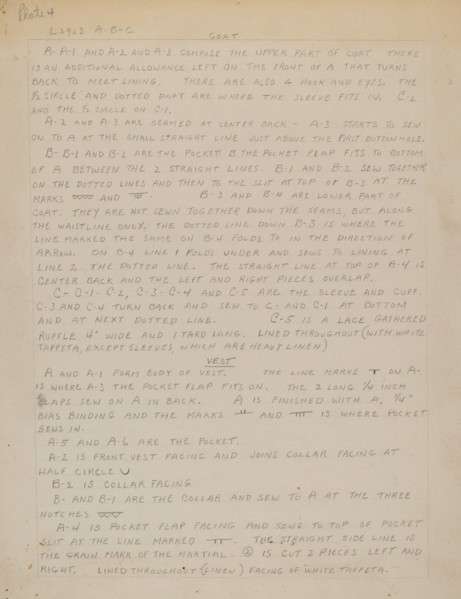 Plate 4
L2963 A-B-C
COAT
A-A-1 AND A-2 AND A-3 COMPOSE THE UPPER PART OF COAT. THERE
IS AN ADDITIONAL ALLOWANCE LEFT ON THE FRONT OF A THAT TURNS
BACK TO MEET LINING. THERE ARE ALSO 4 HOOK AND EYES. THE
½ CIRCLE AND DOTTED DART ARE WHERE THE SLEEVE FITS IN. C-2
AND THE ½ CIRCLE ON C-1.
A-2 AND A-3 ARE SEAMED AT CENTER BACK - A-3 STARTS TO SEW
ON TO A AT THE SMALL STRAIGHT LINE JUST ABOVE THE FIRST BUTTON HOLE.
B- B-1 AND B-2 ARE THE POCKET B THE POCKET FLAP FITS TO BOTTOM
OF A BETWEEN THE 2 STRAIGHT LINES. B-1 AND B-2 SEW TOGETHER
ON THE DOTTED LINES AND THEN TO THE SLIT AT TOP OF B-3 AT THE
MARKS AND B-3 AND B-4 ARE LOWER PART OF
COAT. THEY ARE NOT SEWN TOGETHER DOWN THE SEAMS, BUT ALONG
THE WAISTLINE ONLY. THE DOTTED LINE DOWN B-3 IS WHERE THE
LINE MARKED THE SAME ON B-4 FOLDS TO IN THE DIRECTION OF
ARROW. ON B-4 LINE 1 FOLDS UNDER AND SEWS TO LINING AT
LINE 2 THE DOTTED LINE. THE STRAIGHT LINE AT TOP OF B-4 IS
CENTER BACK AND THE LEFT AND RIGHT PIECES OVERLAP.
C- C-1- C-2, C-3- C-4 AND C-5 ARE THE SLEEVE AND CUFF.
C-3 AND C-4 TURN BACK AND SEW TO C- AND C-1 AT BOTTOM
AND AT NEXT DOTTED LINE. C-5 IS A LACE GATHERED
RUFFLE 4" WIDE AND 1 YARD LONG. LINED THROUGHOUT (WITH WHITE
TAFFETA, EXCEPT SLEEVES, WHICH ARE HEAVY LINEN)
VEST
A AND A-1 FORM BODY OF VEST. THE LINE MARKS ON A-
IS WHERE A-3 THE POCKET FLAP FITS ON. THE 2 LONG ¼ INCH
LAPS SEW ON A IN BACK. A IS FINISHED WITH A, ¼"
BIAS BINDING AND THE MARKS AND IS WHERE POCKET
SEWS IN.
A-5 AND A-6 ARE THE POCKET.
A-2 IS FRONT VEST FACING AND JOINS COLLAR FACING AT
HALF CIRCLE
B-2 IS COLLAR FACING
B- AND B-1 ARE THE COLLAR AND SEW TO A AT THE THREE
NOTCHES
A-4 IS POCKET FLAP FACING AND SEWS TO TOP OF POCKET
SLIT AT THE LINE MARKED. THE STRAIGHT SIDE LINE IS
THE GRAIN MARK OF THE MARTIAL. A IS CUT 2 PIECES LEFT AND
RIGHT. LINED THROUGHOUT (LINEN) FACING OF WHITE TAFFETA.